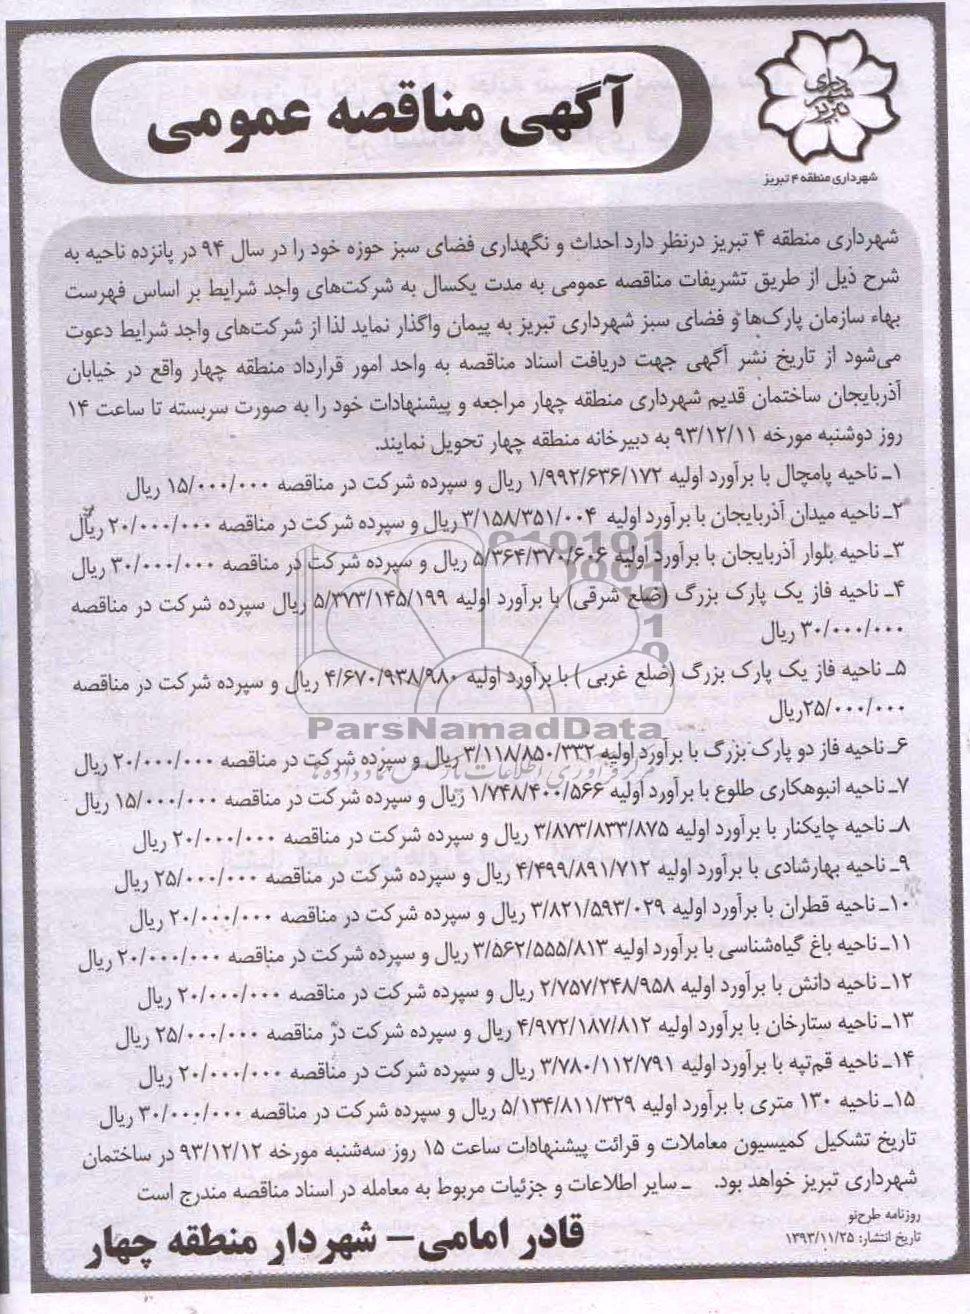 آگهی مناقصه عمومی
شهرداری تبریز
شهرداری منطقه ۴ تبریز
شهرداری منطقه ۴ تبریز درنظر دارد احداث و نگهداری فضای سبز حوزه خود را در سال ۹۴ در پانزده ناحیه به
شرح ذیل از طریق تشریفات مناقصه عمومی به مدت یکسال به شرکت‌های واجد شرایط بر اساس فهرست
بهاء سازمان پارک‌ها و فضای سبز شهرداری تبریز به پیمان واگذار نماید لذا از شرکت‌های واجد شرایط دعوت
می‌شود از تاریخ نشر آگهی جهت دریافت اسناد مناقصه به واحد امور قرارداد منطقه چهار واقع در خیابان
آذربایجان ساختمان قدیم شهرداری منطقه چهار مراجعه و پیشنهادات خود را به صورت سربسته تا ساعت ۱۴
روز دوشنبه مورخه ۹۳/۱۲/۱۱ به دبیرخانه منطقه چهار تحویل نمایند.
۱ـ ناحیه پامچال با برآورد اولیه ۱/۹۹۲/۶۳۶/۱۷۲ ریال و سپرده شرکت در مناقصه ۱۵/۰۰۰/۰۰۰ ریال
۲ـ ناحیه میدان آذربایجان با برآورد اولیه ۳/۱۵۸/۳۵۱/۰۰۴ ریال و سپرده شرکت در مناقصه ۲۰/۰۰۰/۰۰۰ ریال
۳ـ ناحیه بلوار آذربایجان با برآورد اولیه ۵/۳۶۴/۳۷۰/۶۰۶ ریال و سپرده شرکت در مناقصه ۳۰/۰۰۰/۰۰۰ ریال
۴ـ ناحیه فاز یک پارک بزرگ (ضلع شرقی) با برآورد اولیه ۵/۳۷۳/۱۴۵/۱۹۹ ریال سپرده شرکت در مناقصه
۳۰/۰۰۰/۰۰۰ ریال
۵ـ ناحیه فاز یک پارک بزرگ (ضلع غربی ) با برآورد اولیه ۴/۶۷۰/۹۳۸/۹۸۰ ریال و سپرده شرکت در مناقصه
۲۵/۰۰۰/۰۰۰ریال
ParsNamadData
۶ـ ناحیه فاز دو پارک بزرگ با برآورد اولیه ۳/۱۱۸/۸۵۰/۳۳۲ ریال و سپرده شرکت در مناقصه ۲۰/۰۰۰/۰۰۰ ریال
۷ـ ناحیه انبوهکاری طلوع با برآورد اولیه ۱/۷۴۸/۴۰۰/۵۶۶ ریال و سپرده شرکت در مناقصه ۱۵/۰۰۰/۰۰۰ ریال
۸ـ ناحیه چایکنار با برآورد اولیه ۳/۸۷۳/۸۳۳/۸۷۵ ریال و سپرده شرکت در مناقصه ۲۰/۰۰۰/۰۰۰ ریال
۹ـ ناحیه بهارشادی با برآورد اولیه ۴/۴۹۹/۸۹۱/۷۱۲ ریال و سپرده شرکت در مناقصه ۲۵/۰۰۰/۰۰۰ ریال
۱۰ـ ناحیه قطران با برآورد اولیه ۳/۸۲۱/۵۹۳/۰۲۹ ریال و سپرده شرکت در مناقصه ۲۰/۰۰۰/۰۰۰ ریال
۱۱ـ ناحیه باغ گیاه‌شناسی با برآورد اولیه ۳/۵۶۲/۵۵۵/۸۱۳ ریال و سپرده شرکت در مناقصه ۲۰/۰۰۰/۰۰۰ ریال
۱۲ـ ناحیه دانش با برآورد اولیه ۲/۷۵۷/۲۴۸/۹۵۸ ریال و سپرده شرکت در مناقصه ۲۰/۰۰۰/۰۰۰ ریال
۱۳ـ ناحیه ستارخان با برآورد اولیه ۴/۹۷۲/۱۸۷/۸۱۲ ریال و سپرده شرکت در مناقصه ۲۵/۰۰۰/۰۰۰ ریال
۱۴ـ ناحیه قم‌تپه با برآورد اولیه ۳/۷۸۰/۱۱۲/۷۹۱ ریال و سپرده شرکت در مناقصه ۲۰/۰۰۰/۰۰۰ ریال
۱۵ـ ناحیه ۱۳۰ متری با برآورد اولیه ۵/۱۳۴/۸۱۱/۳۲۹ ریال و سپرده شرکت در مناقصه ۳۰/۰۰۰/۰۰۰ ریال
تاریخ تشکیل کمیسیون معاملات و قرائت پیشنهادات ساعت ۱۵ روز سه‌شنبه مورخه ۹۳/۱۲/۱۲ در ساختمان
شهرداری تبریز خواهد بود. ـ سایر اطلاعات و جزئیات مربوط به معامله در اسناد مناقصه مندرج است
روزنامه طرح‌نو
تاریخ انتشار: ۱۳۹۳/۱۱/۲۵
قادر امامی – شهردار منطقه چهار